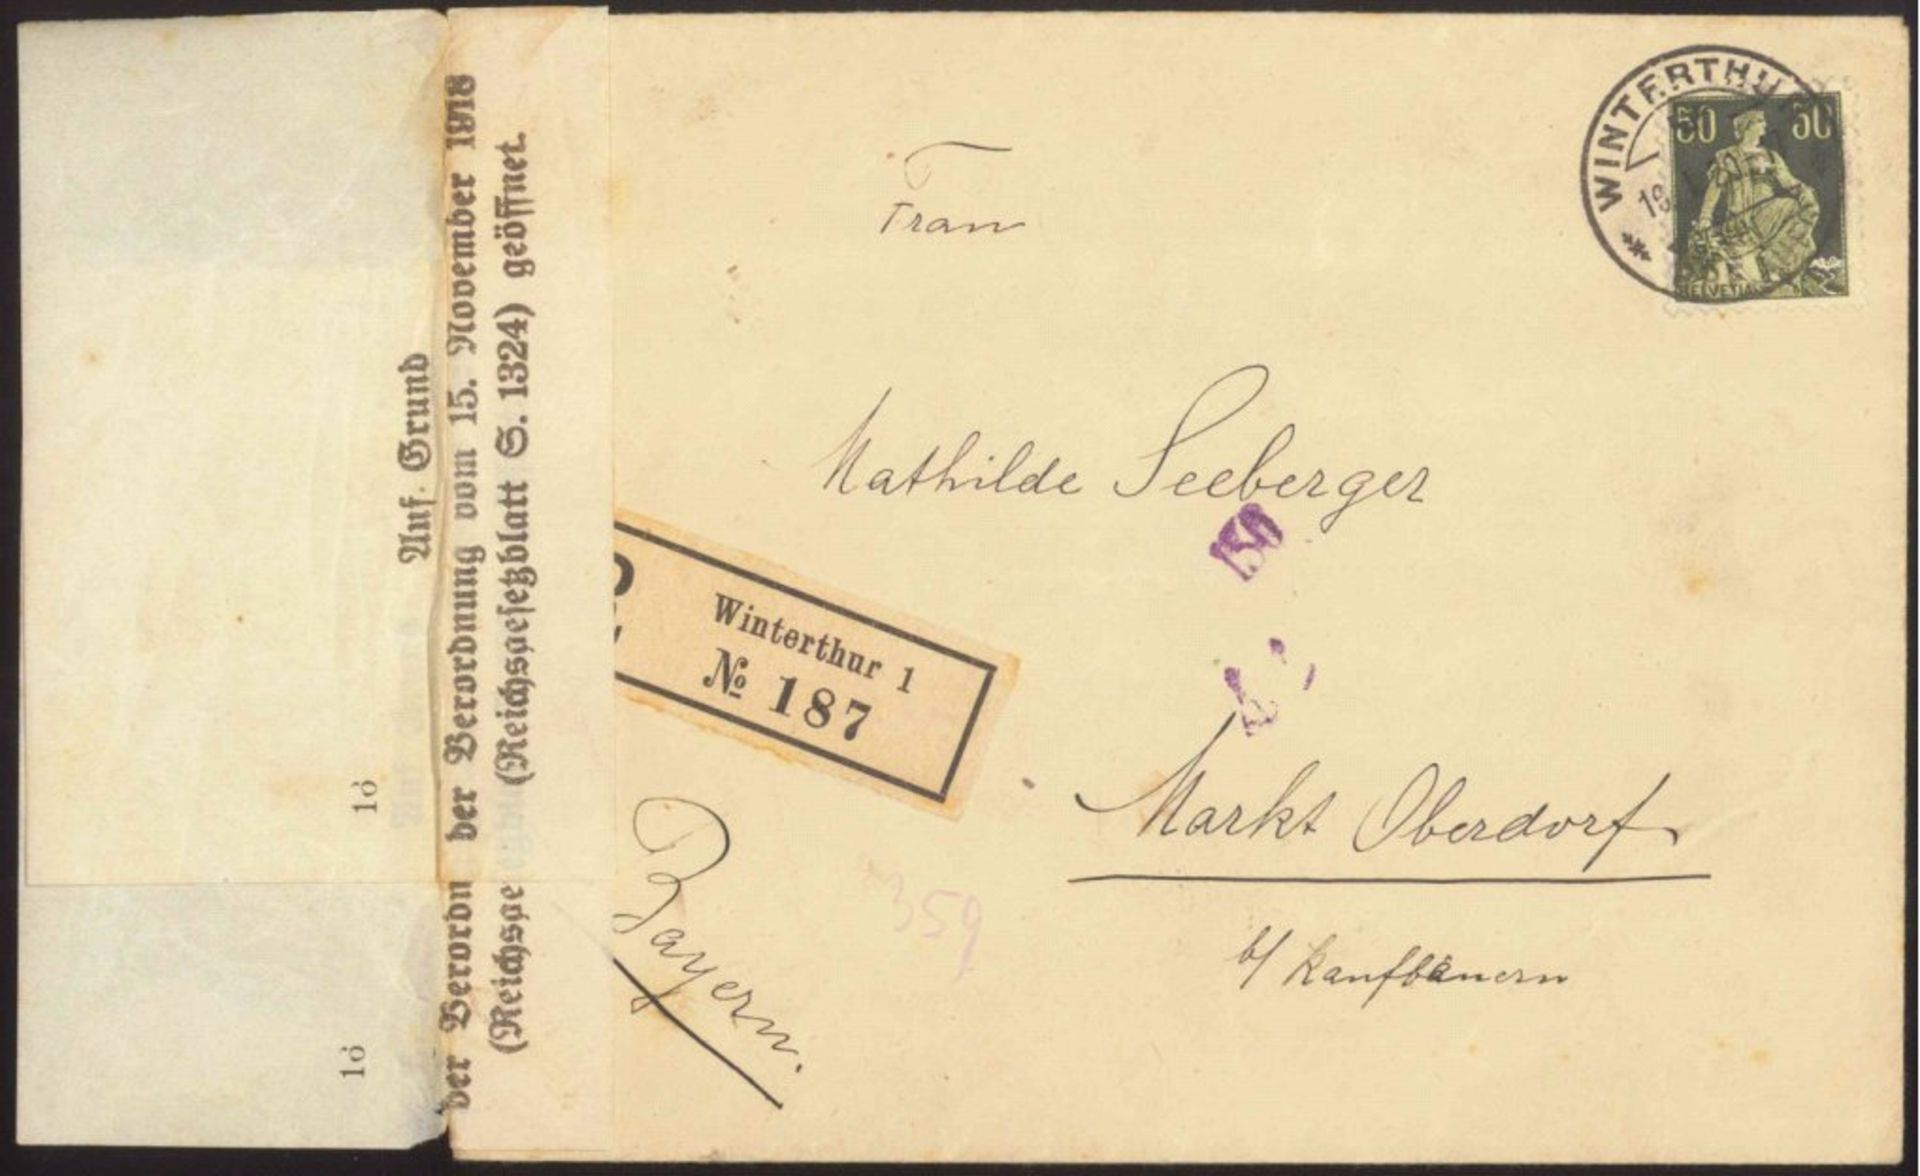 Auf Grund
der Verordnung vom 15. November 1918
(Reichsgesetzblatt S. 1324) geöffnet.
der Verordn
(Reichsge
16
16
WINTERTHUR
50 50
HELVETIA
Frau
Mathilde Seeberger
150
Winterthur 1
№ 187
Markt Oberdorf
b/ Kaufbäuern
Bayern.
359